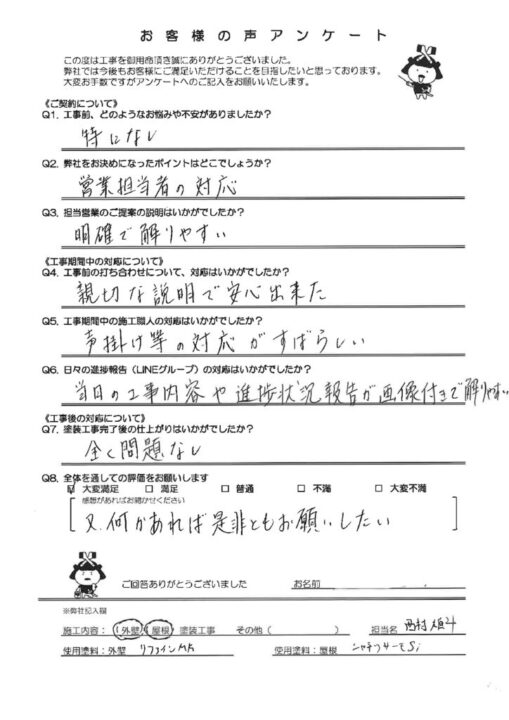 お客様の声アンケート
この度は工事を御用命頂き誠にありがとうございました。
弊社では今後もお客様にご満足いただけることを目指したいと思っております。
大変お手数ですがアンケートへのご記入をお願いいたします。
《ご契約について》
Q1. 工事前、どのようなお悩みや不安がありましたか?
特になし
Q2. 弊社をお決めになったポイントはどこでしょうか?
営業担当者の対応
Q3. 担当営業のご提案の説明はいかがでしたか?
明確で解りやすい
《工事期間中の対応について》
Q4. 工事前の打ち合わせについて、対応はいかがでしたか?
親切な説明で安心出来た
Q5. 工事期間中の施工職人の対応はいかがでしたか?
声掛け等の対応がすばらしい
Q6. 日々の進捗報告(LINEグループ)の対応はいかがでしたか?
当日の工事内容や進捗状況報告が画像付きで解りやすい
《工事後の対応について》
Q7. 塗装工事完了後の仕上がりはいかがでしたか?
全く問題なし
Q8. 全体を通しての評価をお願いします
☑ 大変満足 □ 満足 □ 普通 □ 不満 □ 大変不満
感想があればお聞かせください
又、何かあれば是非ともお願いしたい
ご回答ありがとうございました お名前
※弊社記入欄
施工内容:(外壁)(屋根)塗装工事 その他( ) 担当名 西村
使用塗料:外壁 リファインMK 使用塗料:屋根 Si